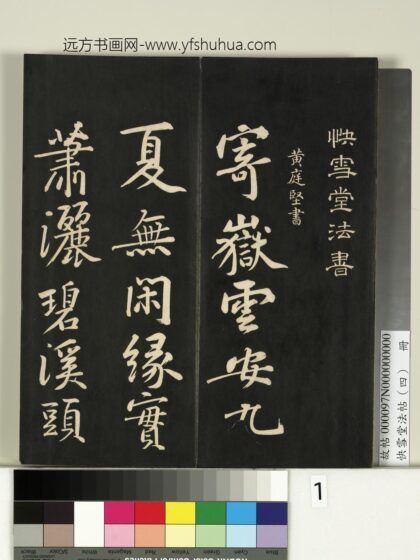 远方书画网-www.yfshuhua.com
快雪堂法書
黄庭堅書
寄嶽雲安九
夏無閑緣實
蕭灑碧溪頭
故帖 000097N000000000
快雪堂法帖（四） 冊
1